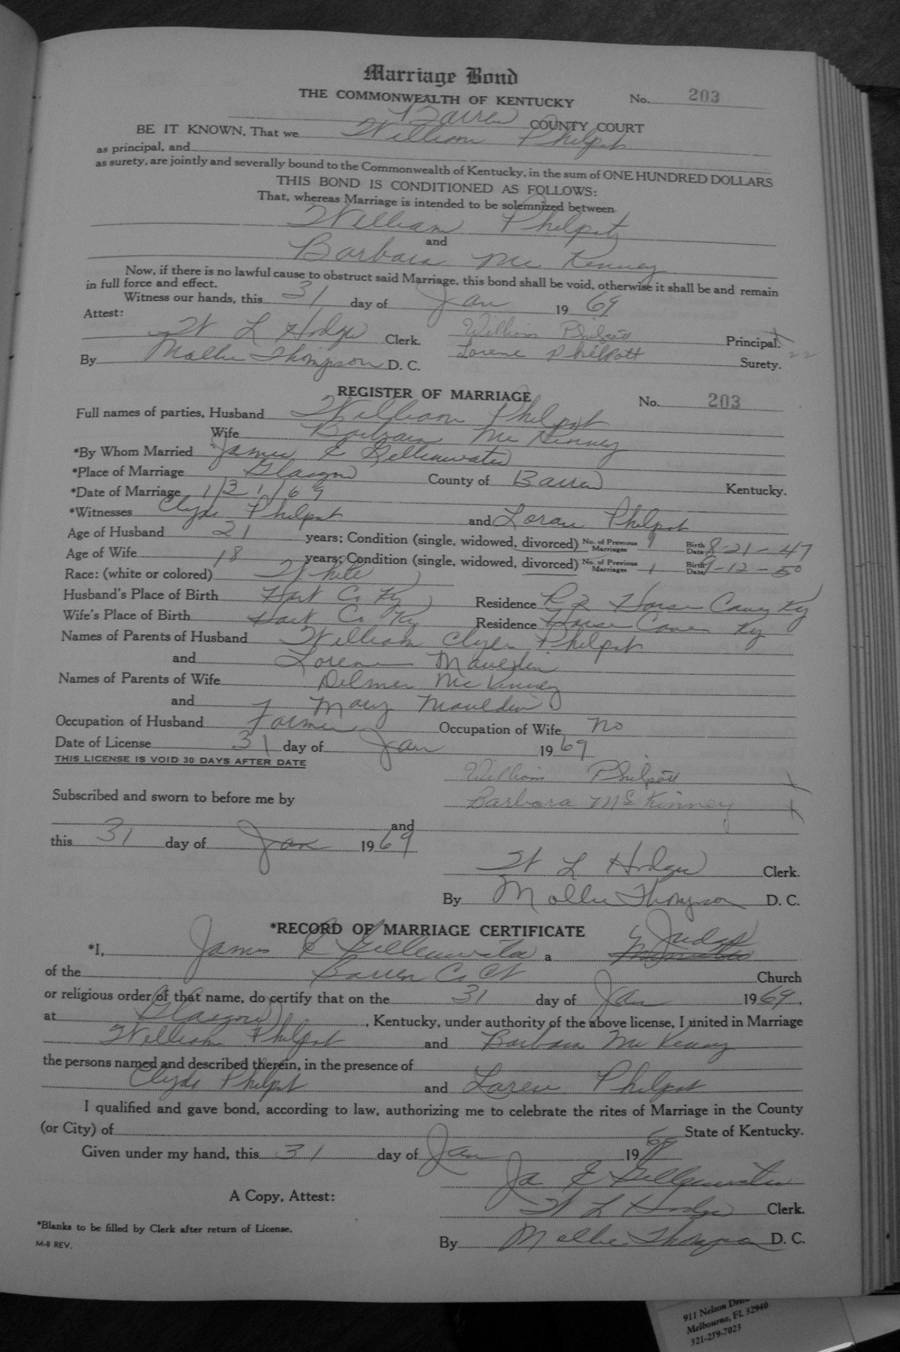 Marriage Bond
THE COMMONWEALTH OF KENTUCKY No. 203
Barren COUNTY COURT
BE IT KNOWN, That we William Philpot
as principal, and
as surety, are jointly and severally bound to the Commonwealth of Kentucky, in the sum of ONE HUNDRED DOLLARS
THIS BOND IS CONDITIONED AS FOLLOWS:
That, whereas Marriage is intended to be solemnized between
William Philpot
and
Barbara Mc Kenney
Now, if there is no lawful cause to obstruct said Marriage, this bond shall be void, otherwise it shall be and remain
in full force and effect.
Witness our hands, this 31 day of Jan 1969
Attest:
W L Hodge Clerk. William Philpott Principal.
By Mollie Thompson D. C. Lorene Philpott Surety.
REGISTER OF MARRIAGE No. 203
Full names of parties, Husband William Philpot
Wife Barbara Mc Kinney
*By Whom Married James E Gillenwater
*Place of Marriage Glasgow County of Barren Kentucky.
*Date of Marriage 1/31/69
*Witnesses Clyde Philpot and Loran Philpot
Age of Husband 21 years; Condition (single, widowed, divorced) No. of Previous Marriages Birth Date 8-21-47
Age of Wife 18 years; Condition (single, widowed, divorced) No. of Previous Marriages 1 Birth Date 9-12-50
Race: (white or colored) White
Husband's Place of Birth Hart Co Ky Residence Horse Cave Ky
Wife's Place of Birth Hart Co Ky Residence Horse Cave Ky
Names of Parents of Husband William Clyde Philpot
and Lorene Mauldin
Names of Parents of Wife Delmer Mc Kinney
and Mary Mauldin
Occupation of Husband Farmer Occupation of Wife no
Date of License 31 day of Jan 1969
THIS LICENSE IS VOID 30 DAYS AFTER DATE
William Philpott
Subscribed and sworn to before me by Barbara McKinney
and
this 31 day of Jan 1969
W L Hodge Clerk.
By Mollie Thompson D. C.
*RECORD OF MARRIAGE CERTIFICATE
*I, James E Gillenwater a Judge
of the Barren Co Ct Church
or religious order of that name, do certify that on the 31 day of Jan 1969,
at Glasgow, Kentucky, under authority of the above license, I united in Marriage
William Philpot and Barbara Mc Kenney
the persons named and described therein, in the presence of
Clyde Philpot and Loren Philpot
I qualified and gave bond, according to law, authorizing me to celebrate the rites of Marriage in the County
(or City) of State of Kentucky.
Given under my hand, this 31 day of Jan 1969
Ja E Gillenwater
A Copy, Attest: W L Hodge Clerk.
*Blanks to be filled by Clerk after return of License.
M-8 REV. By Mollie Thompson D. C.
911 Nelson Drive
Melbourne, FL 32940
321-259-7023